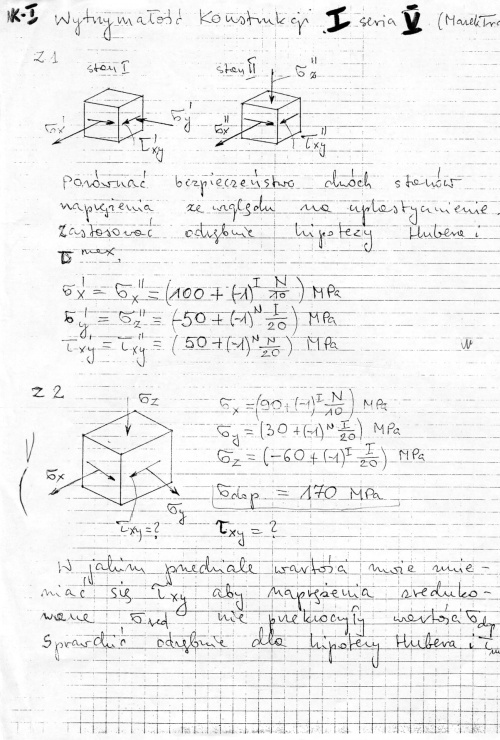 WK-I Wytrzymałość Konstrukcji I seria V (Marek
Z1
stan I
stan II
σz''
σx'
τ'xy
σy'
σx''
τxy''
Porównać bezpieczeństwo dwóch stanów
naprężenia ze względu na uplastycznienie.
Zastosować odrębnie hipotezy Hubera i
τmax.
σx' = σx'' = (100 + (-1)^I N/10) MPa
σy' = σz'' = (-50 + (-1)^N I/20) MPa
τxy' = τxy'' = (50 + (-1)^N N/20) MPa
Z2
σz
σx
σy
τxy = ?
σx = (90 + (-1)^I N/10) MPa
σy = (30 + (-1)^N I/20) MPa
σz = (-60 + (-1)^I I/20) MPa
σdop = 170 MPa
τxy = ?
W jakim przedziale wartości może zmie-
niać się τxy aby naprężenia zreduko-
wane σred nie przekroczyły wartości σdop
Sprawdzić odrębnie dla hipotezy Hubera i